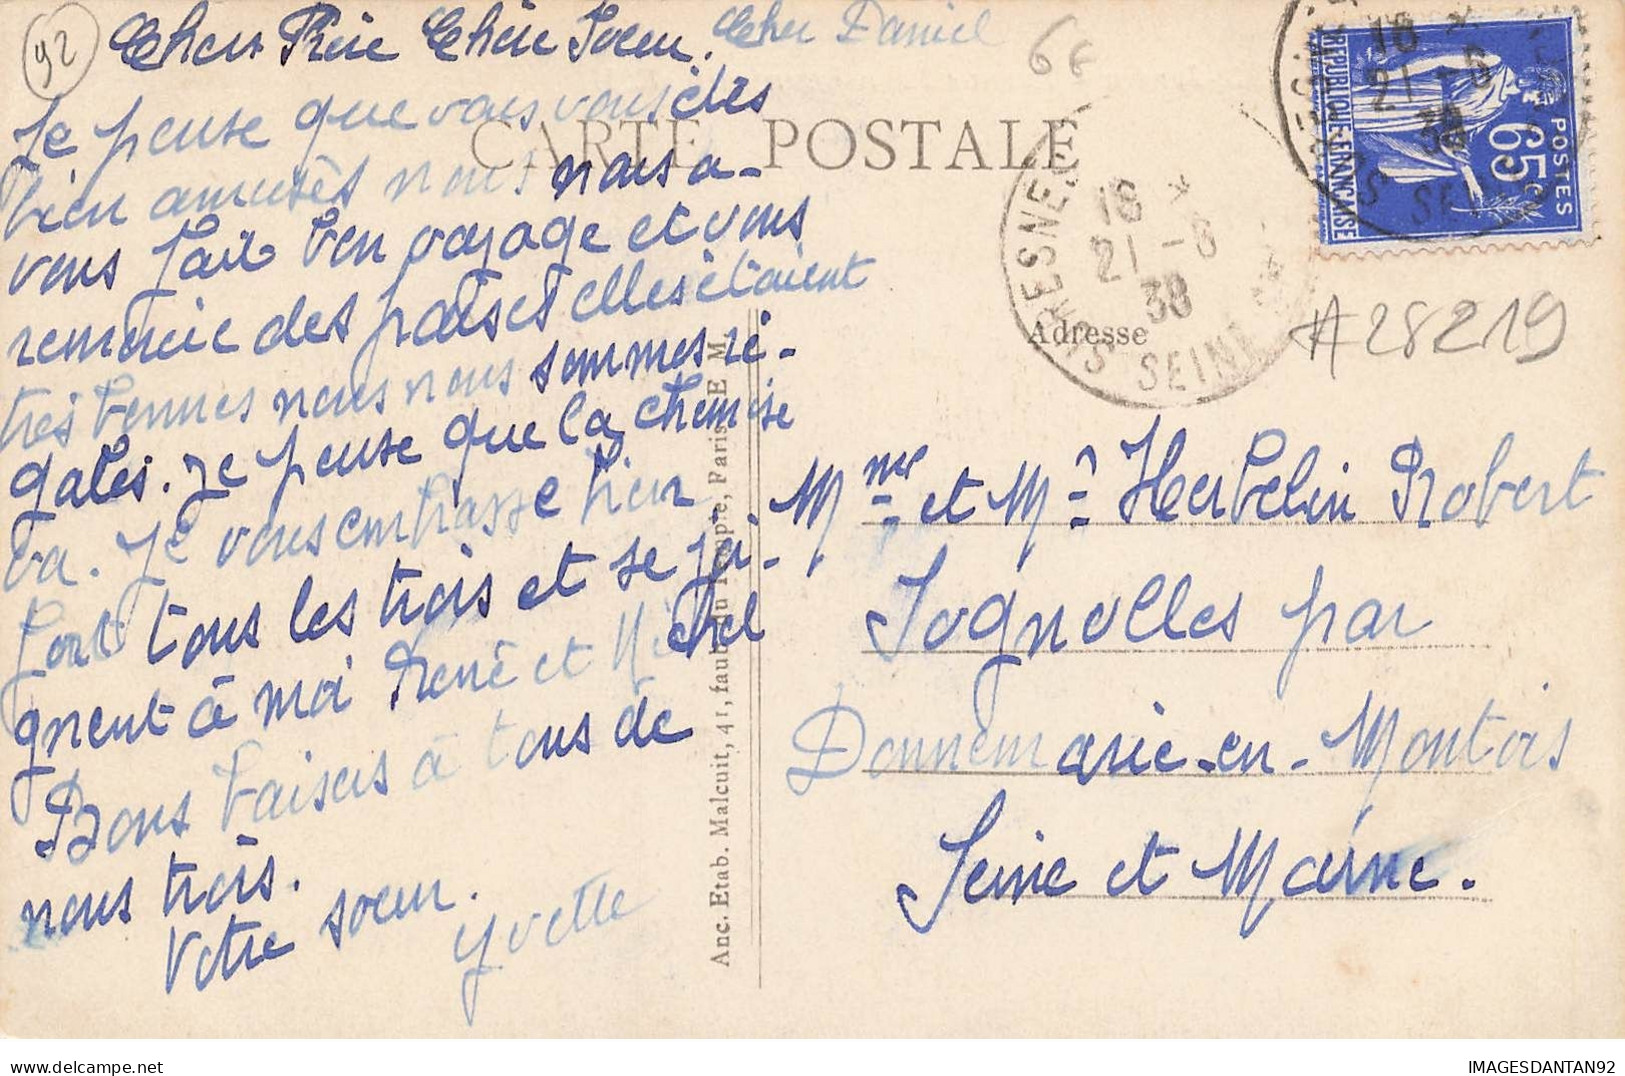 92
Cher Frère Chère Soeur. Cher Daniel
Je pense que vous vous êtes
bien amusés nous nous a-
vons fait bon voyage et vous
remercie des fraises elles étaient
très bonnes nous nous sommes ré-
galés. Je pense que la chemise
va. Je vous embrasse bien
fort tous les trois et se joi-
gnent à moi René et Michel
Bons baisers à tous de
nous trois.
Votre soeur.
Yvette
CARTE POSTALE
Anc. Etab. Malcuit, 41, faub. du Temple, Paris E M
6E
SURESNES
18 *
21 - 6
38
SEINE
18 *
21 - 6
38
SEINE
REPUBLIQUE FRANÇAISE
65c
POSTES
Adresse
A28219
Mme et Mr Herbelin Robert
Sognolles par
Donnemarie-en-Montois
Seine et Marne.
IMAGESDANTAN92